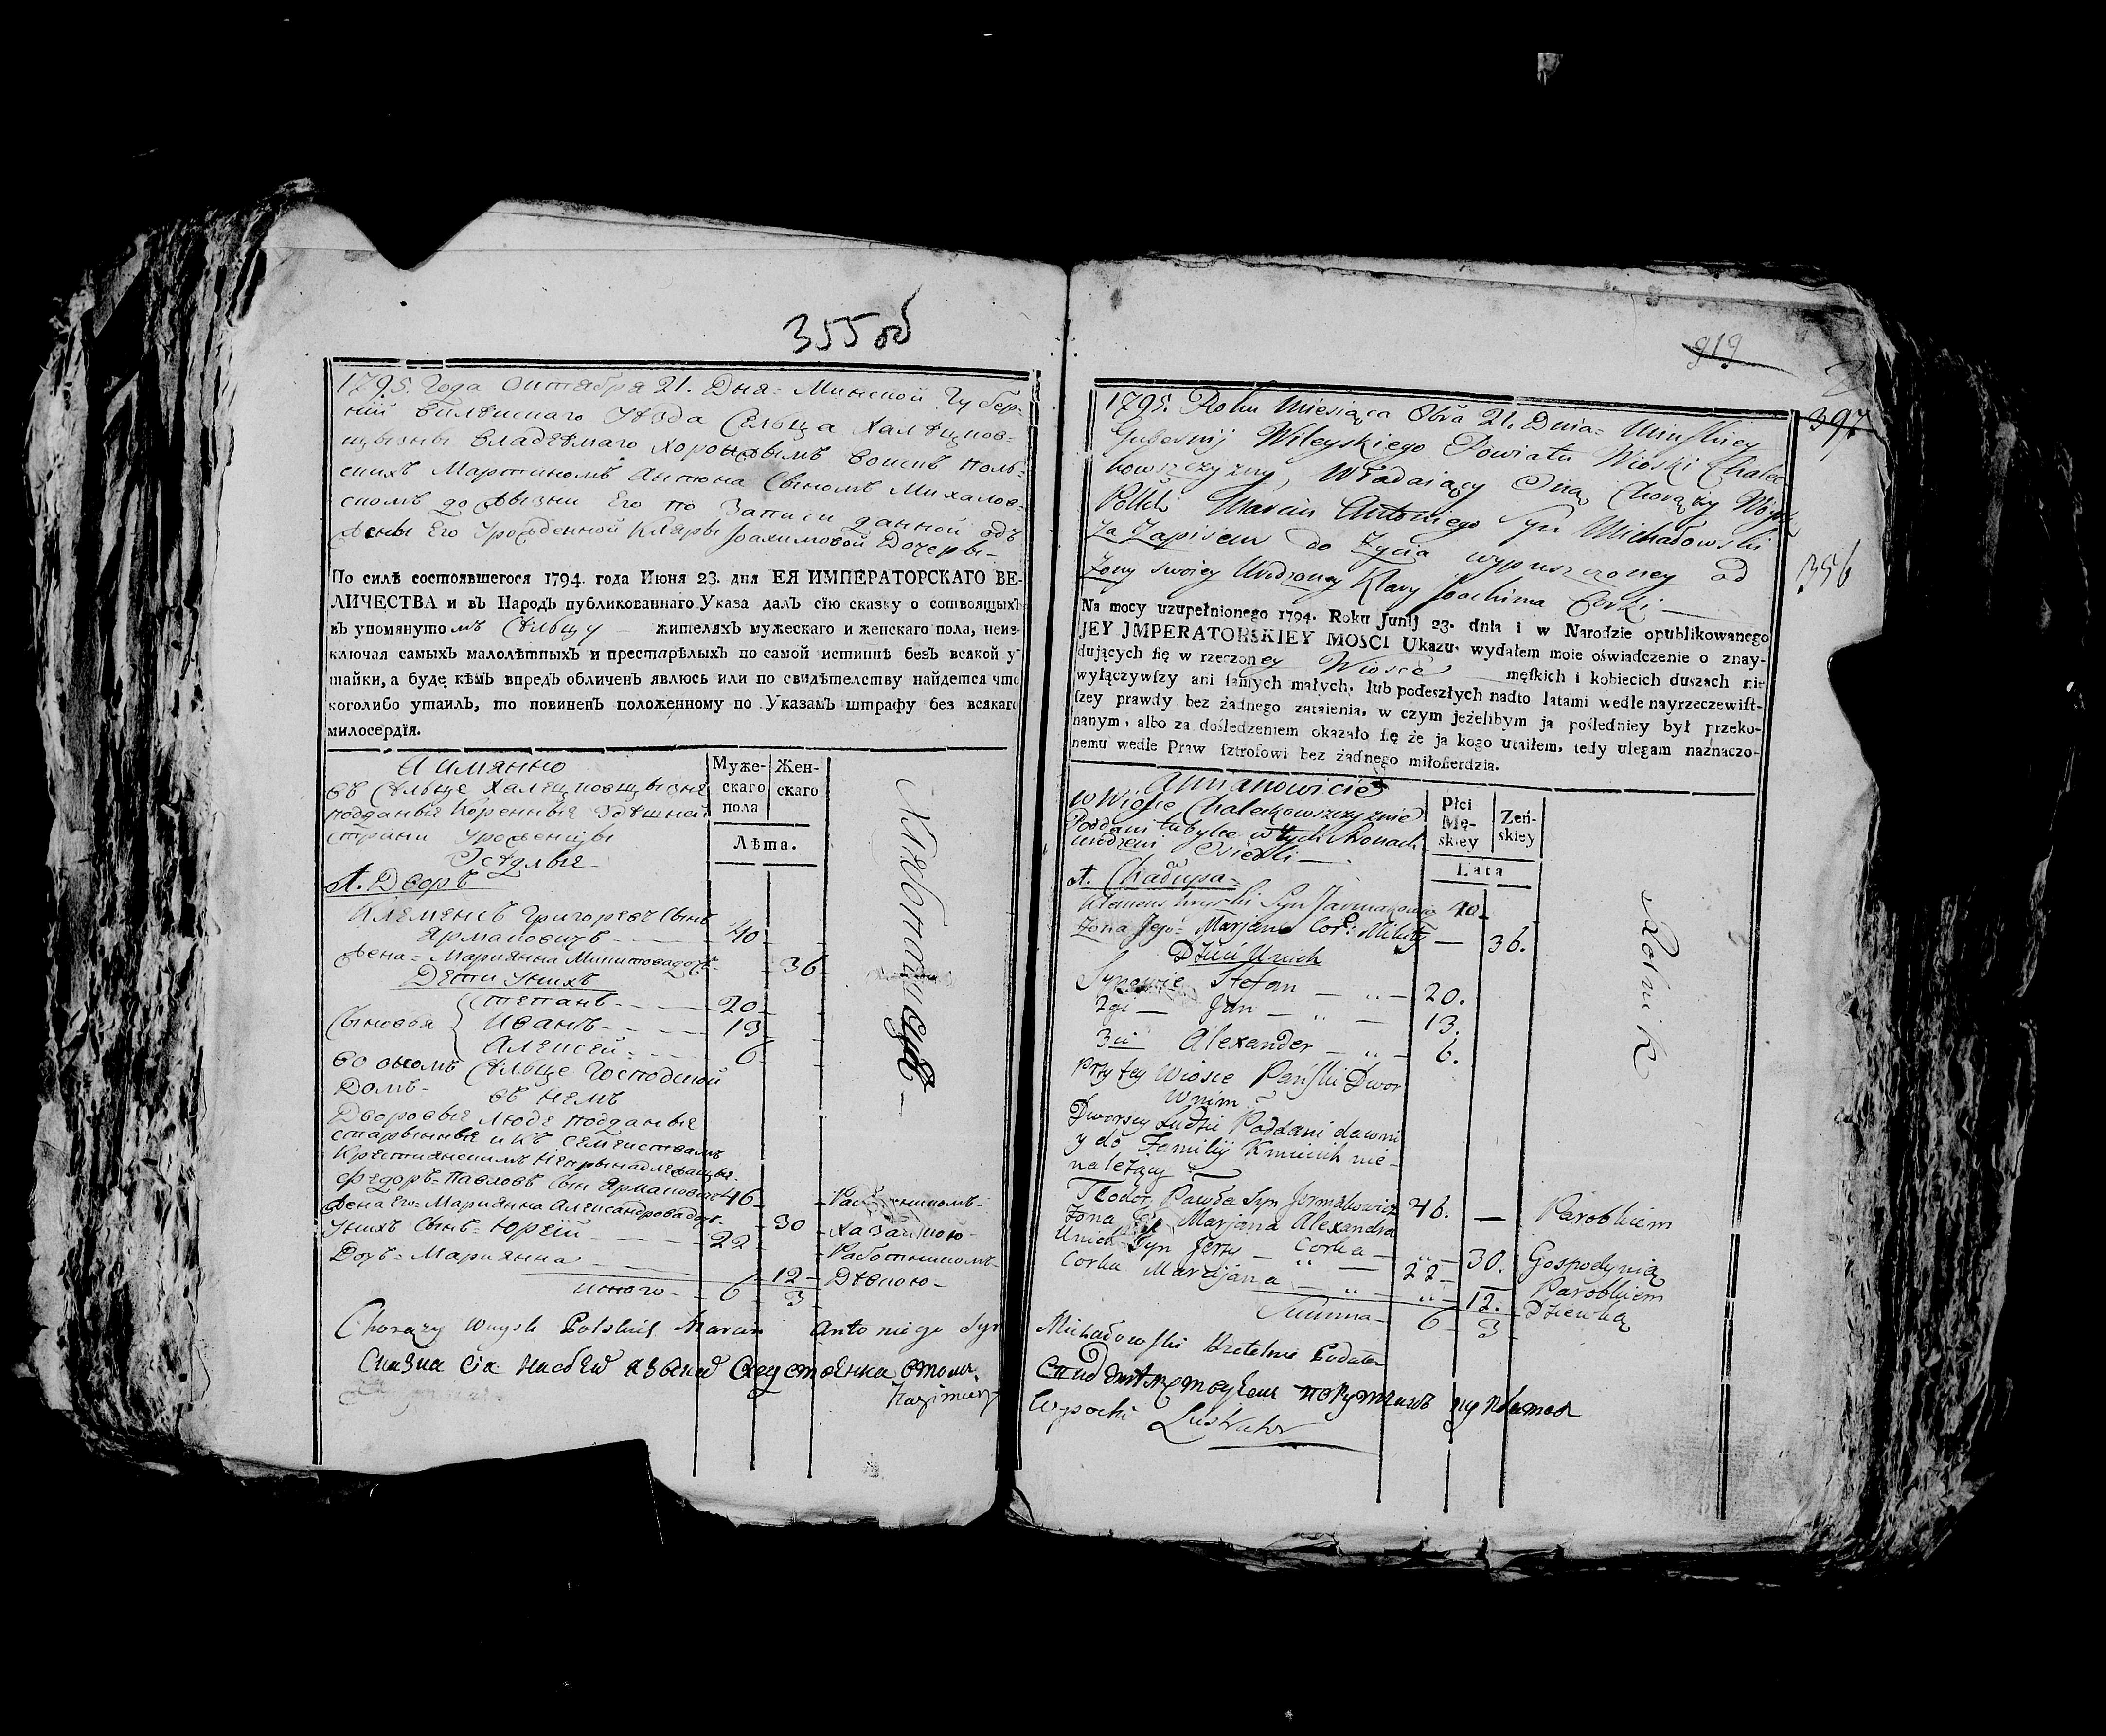 355 об
1795. Года Октября 21. Дня = Минской Губер=
нии Вилейскаго Уезда Сельца Халецков=
щызны владеемаго хоронжымъ воискъ поль=
скихъ Мартиномъ Антона Сыномъ Михалов=
скомъ до жызни Его по Записи данной одъ
жены Его Урожденной Кляры Іоахимовой Дочеры -
По силѣ состоявшегося 1794. года Июня 23. дня ЕЯ ИМПЕРАТОРСКАГО ВЕ-
ЛИЧЕСТВА и въ Народъ публикованнаго Указа далъ сїю сказку о состоящыхъ
въ упомянутомъ Сельцу — жителяхъ мужескаго и женскаго пола, неиз-
ключая самыхъ малолѣтныхъ и престарѣлыхъ по самой истиннѣ безъ всякой у-
тайки, а буде кѣмъ впредъ обличенъ явлюсь или по свидѣтелству найдется что
коголибо утаилъ, то повиненъ положенному по Указамъ штрафу без всякаго
милосердїя.
А имянно
въ Сельце Халецковщызне
подданые коренные здешней
страни Уроженцы
Оседлые -
Муже-
скаго
пола
Жен-
скаго
Лѣта.
А. Дворъ
Клеменсъ Григорьевъ Сынъ
Ярмаковичъ - 40
Жена = Марианна Микитова дочь - 36
Дети у нихъ
Сыновья { Степанъ - 20
Иванъ - 13
Алексей - 6
Во ономъ Сельце Господской
Домъ - въ немъ
Дворовые люде подданые
старынные и къ Семействамъ
Крестянскимъ непрынадлежащые.
Федоръ = Павловъ Сын Ярмаковичъ 46 -
Жена Его = Марианна Александрова дочь - 30 - хазайкою -
У нихъ Сынъ = Юрей - 22 - Работникомъ -
Дочь = Марианна - 12 - Девкою -
итого - 6 3
Хлеботпашцъ —
Chorąży Woysk Polskich Marcin Antoniego Syn
Kazimierz
919
397
356
1795. Roku Miesiąca 8bra 21. Dnia = Minskiey
Gubernij Wileyskiego Powiatu Wioski Chalec
kowszczyzny, Władaiący Oną Chorąży Woysk
Polsk Marcin Antoniego Syn Michałowski
za zapisem do życia wypuszczoney od
żony swoiey Urodzoney Klary Joachima Corki —
Na mocy uzupełnionego 1794. Roku Junij 23. dnia i w Narodzie opublikowanego
JEY JMPERATORSKIEY MOSCI Ukazu, wydałem moie oświadczenie o znay-
dujących się w rzeczoney Wiosce — męſkich i kobiecich duszach nie
wyłączywſzy ani ſamych małych, lub podeszłych nadto latami wedle nayrzeczewiſt-
ſzey prawdy bez żadnego zataienia, w czym jeżelibym ja pośledniey był przeko-
nanym, albo za dośledzeniem okazało ſię że ja kogo utaiłem, tedy ulegam naznaczo-
nemu wedle Praw ſztrofowi bez żadnego miłoſierdzia.
a mianowicie
w Wiosce Chaleckowszczyznie
Poddani tubylce w tych stronach
urodzeni Osiedli —
Płci
Mę-
skiey
Żeń-
skiey
Lata
A. Chałupa =
Klemens Syn Jarmakowicz 40.
Żona Jego = Marjana Cor: Mikity — 36.
Dzieci u nich
Synowie Stefan — „ — 20.
2gi — Jan — „ — 13.
3ci Alexander — „ — 6.
Przy tey Wiosce Pański Dwor
w nim =
Dworscy Ludzie Poddani dawni
y do Familij Kmiecich nie-
należący
Teodor Pawła Syn Jermakowicz 46. — Parobkiem
Żona Jego Marjana Alexandra
Corka — „ — 30. Gospodynią
U nich Syn Jerzy — „ — 22 — Parobkiem
Corka Marcijana — „ — „ — 12. Dziewką
Summa — 6 3
Rolnik
Michałowski Rzetelnie Podałem
Wysocki Lustrator